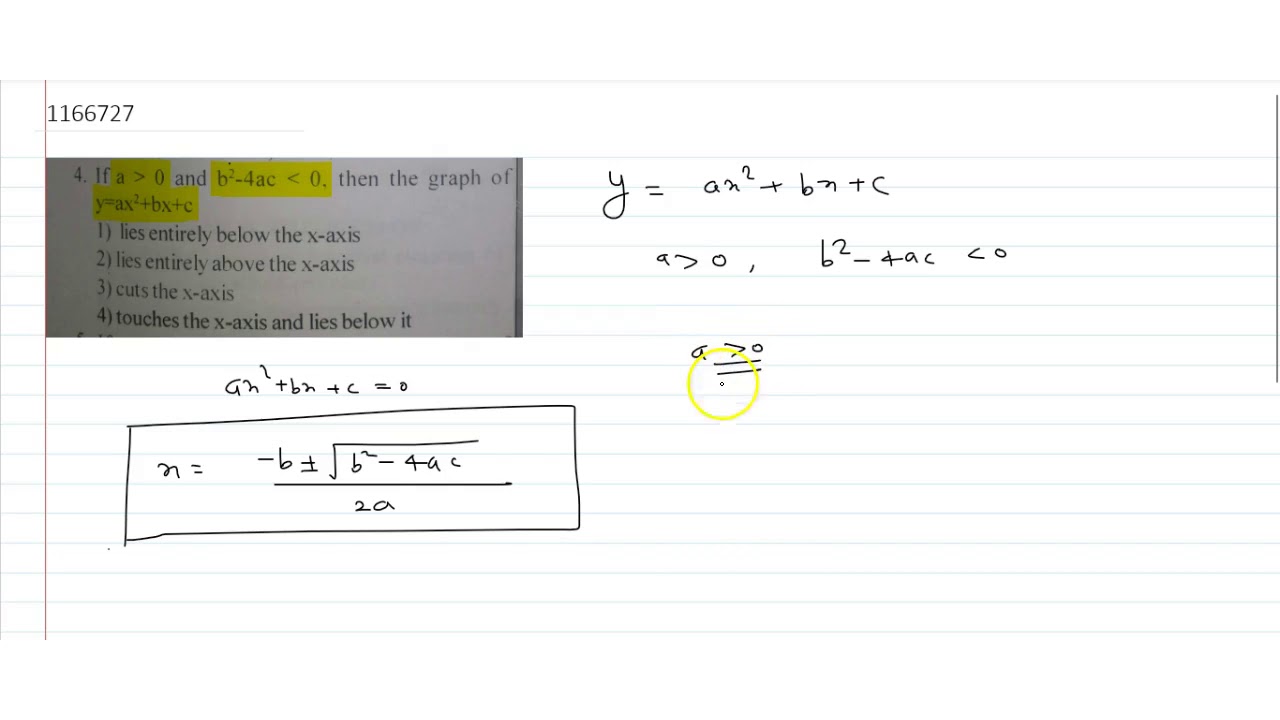 1166727
4. If a > 0 and b²-4ac < 0, then the graph of
y=ax²+bx+c
1) lies entirely below the x-axis
2) lies entirely above the x-axis
3) cuts the x-axis
4) touches the x-axis and lies below it
y = ax² + bx + c
a > 0 , b² - 4ac < 0
a > 0
ax² + bx + c = 0
x = -b ± √b² - 4ac
2a